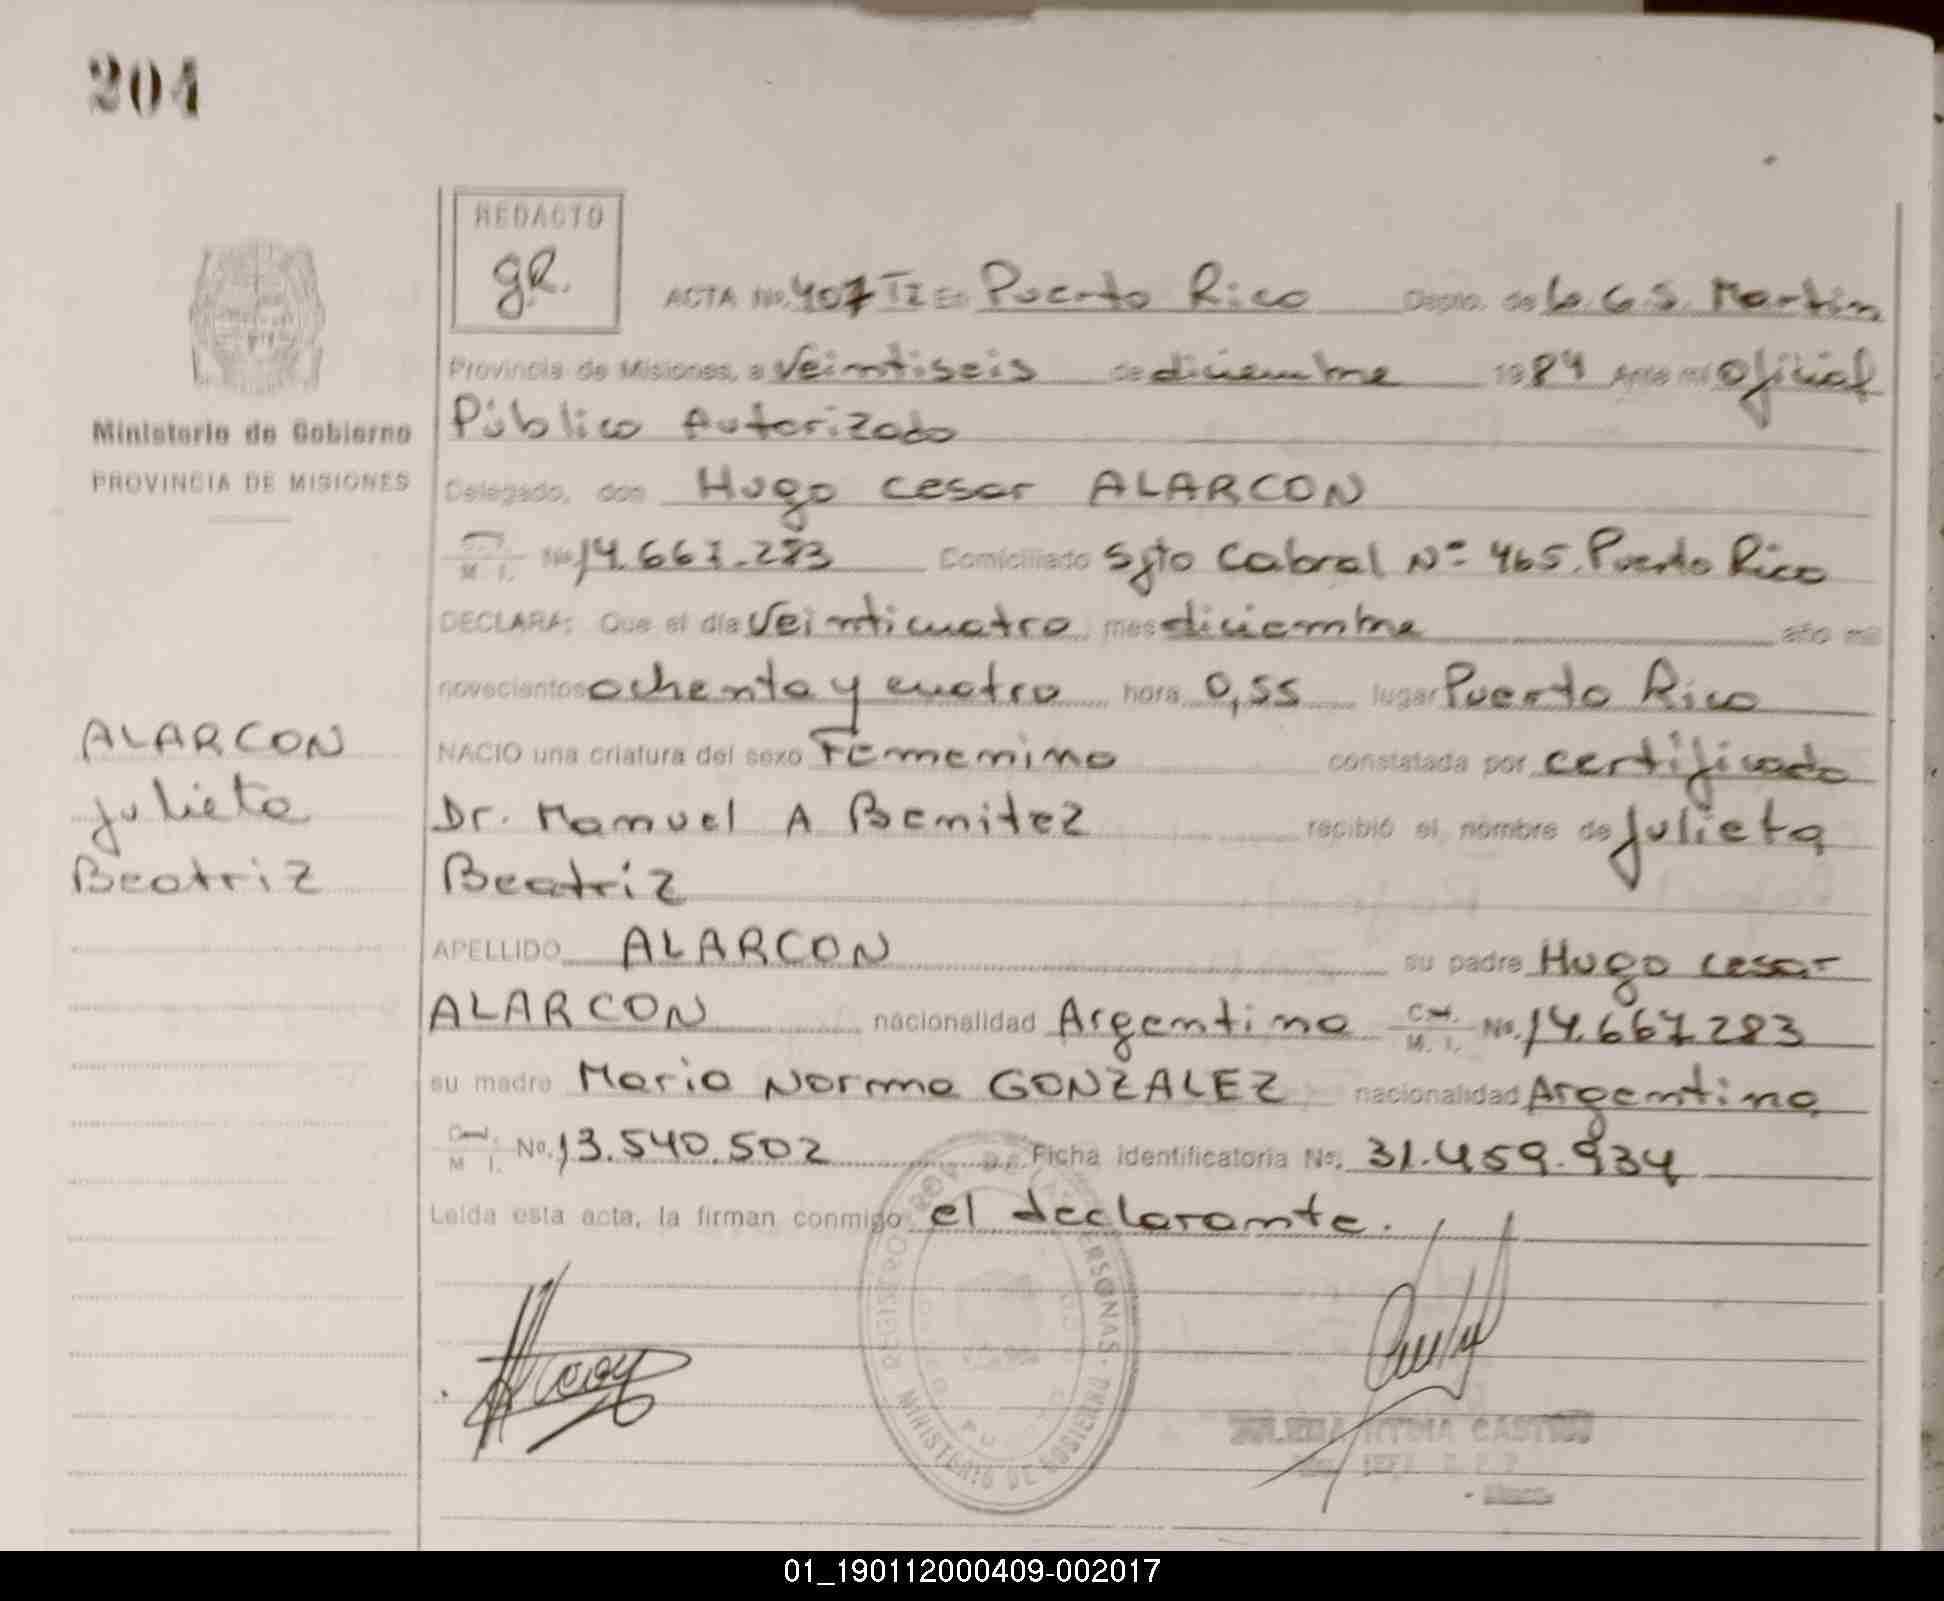 204
REDACTO
gR.
ACTA No. 407 TI En Puerto Rico Depto. de L. G. S. Martin
Provincia de Misiones, a Veintiseis de diciembre 1984 Ante mi Oficial
Ministerio de Gobierno
Público Autorizado
PROVINCIA DE MISIONES
Delegado, don Hugo Cesar ALARCON
M. I. No. 14.667.283 Domiciliado Sgto Cabral Nº 465. Puerto Rico
DECLARA: Que el día Veinticuatro mes diciembre año mil
novecientos ochenta y cuatro hora 0,55 lugar Puerto Rico
ALARCON
NACIO una criatura del sexo Femenino constatada por certificado
Julieta
Dr. Manuel A Benitez recibió el nombre de Julieta
Beatriz
Beatriz
APELLIDO ALARCON su padre Hugo Cesar
ALARCON nacionalidad Argentino M. I. No. 14.667.283
su madre Maria Norma GONZALEZ nacionalidad Argentina
M I. No. 13.540.502 Ficha identificatoria No. 31.459.934
Leída esta acta, la firman conmigo el declarante.
REGISTRO PERSONAS
MINISTERIO DE GOBIERNO
CASTRO
01_190112000409-002017